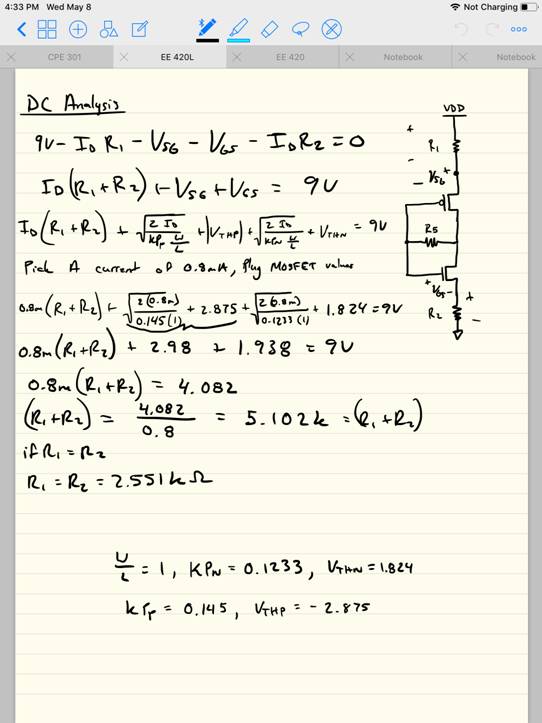 4:33 PM Wed May 8
Not Charging
CPE 301
EE 420L
EE 420
Notebook
Notebook
DC Analysis
9V - I_D R_1 - V_SG - V_GS - I_D R_2 = 0
I_D(R_1+R_2) + V_SG + V_GS = 9V
I_D(R_1+R_2) + √(2 I_D / KP_P W/L) + |V_THP| + √(2 I_D / KP_N W/L) + V_THN = 9V
Pick A current of 0.8mA, plug MOSFET values
0.8m(R_1+R_2) + √(2(0.8m) / 0.145(1)) + 2.875 + √(2(0.8m) / 0.1233(1)) + 1.824 = 9V
0.8m(R_1+R_2) + 2.98 + 1.938 = 9V
0.8m(R_1+R_2) = 4.082
(R_1+R_2) = 4.082 / 0.8 = 5.102k = (R_1+R_2)
if R_1 = R_2
R_1 = R_2 = 2.551kΩ
W/L = 1, KP_N = 0.1233, V_THN = 1.824
KP_P = 0.145, V_THP = - 2.875
VDD
+
R_1
-
+
V_SG
-
R_5
+
V_GS -
+
R_2
-